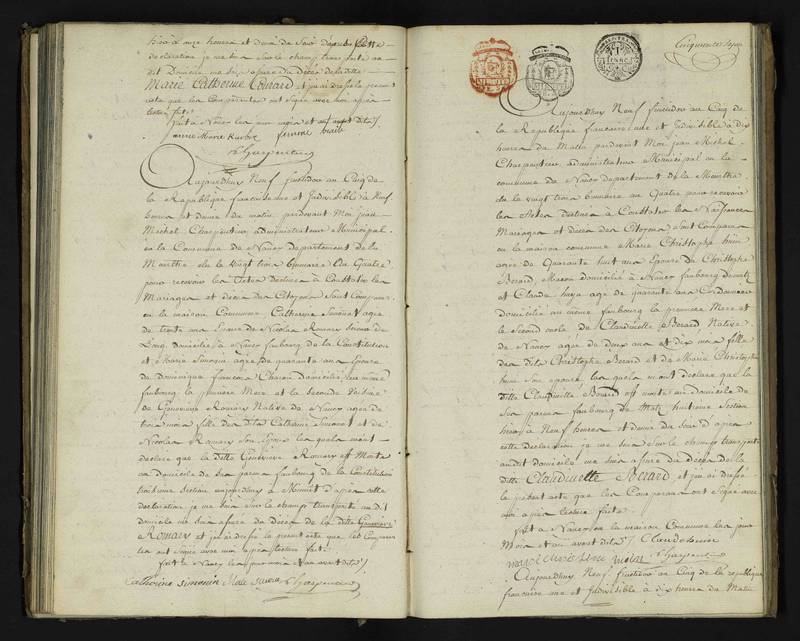 hier à onze heures et demi du Soir d'après cette
declaration je me suis sur le champ transporté au
dit Domicile me suis assuré du Décès de la ditte
Marie Catherine Conrard et j'ai dressé le present
acte que les Comparantes ont signé avec moi après
lecture faite
fait à Nancy les an mois et an avant dits
femme
Charpentier
Aujourdhuy Neuf fructidor an Cinq de
la Republique francaise une et Indivisible à Neuf
heures et demie du matin pardevant Moi jean
Michel Charpentier administrateur Municipal
en la Commune de Nancy departement de la
Meurthe elu le Vingt trois brumaire an Quatre
pour recevoir les Actes destinés à Constater les
Mariages et décès des Citoyens Sont Comparus
en la maison Commune Catherine Simonin agée
de trente ans Epouse de Nicolas Romary
domicilié à Nancy faubourg de la Constitution
et Marie agée de quarante ans Epouse
de Dominique Domicilié au même
faubourg la premiere Mere et la Seconde Voisine
de Genevieve Romary Native de Nancy agée de
trois mois fille des dits Catherine Simonin et de
Nicolas Romary Son Epoux lesquels mont
declaré que la ditte Genevieve Romary est Morte
au domicile de ses parens faubourg de la Constitution
troisieme Section aujourdhuy à Minuit d'après cette
declaration je me suis sur le champ transporté au dit
domicile me suis assuré du décès de la ditte Genevieve
Romary et j'ai dressé le present acte que les Comparans
ont signé avec moi après lecture faite
fait à Nancy les jour mois et an avant dits
Catherine simonin Charpentier
Cinquante Sept
Aujourdhuy Neuf fructidor an Cinq de
la Republique francaise une et Indivisible à dix
heures du Matin pardevant Moi jean Michel
Charpentier administrateur Municipal en la
commune de Nancy departement de la Meurthe
elu le vingt trois brumaire an Quatre pour recevoir
les Actes destinés à Constater les Naissances
Mariages et décès des Citoyens, sont Comparus
en la maison commune Marie Christophe
agée de Quarante huit ans Epouse de Christophe
Berard, Macon domicilié à Nancy faubourg de metz
et Claude agé de quarante ans Cordonnier
domicilié au même faubourg la premiere Mere et
le Second oncle de Claudinette Berard Native
de Nancy agée de deux ans et dix mois fille
des dits Christophe Berard et de Marie Christophe
son epouse lesquels mont declaré que la
ditte Claudinette Berard est morte au domicile de
ses parens faubourg de Metz huitieme Section
hier à Neuf heures et demie du soir d'après
cette déclaration je me suis sur le champ transporté
audit domicile me suis assuré du Décès de la
ditte Claudinette Berard et j'ai dressé
le present acte que les Comparans ont signé avec
moi après lecture faite
fait à Nancy en la maison Commune les jour
Mois et an avant dits
Charpentier
Aujourdhuy Neuf fructidor an Cinq de la republique
francaise une et Indivisible à dix heures du Matin